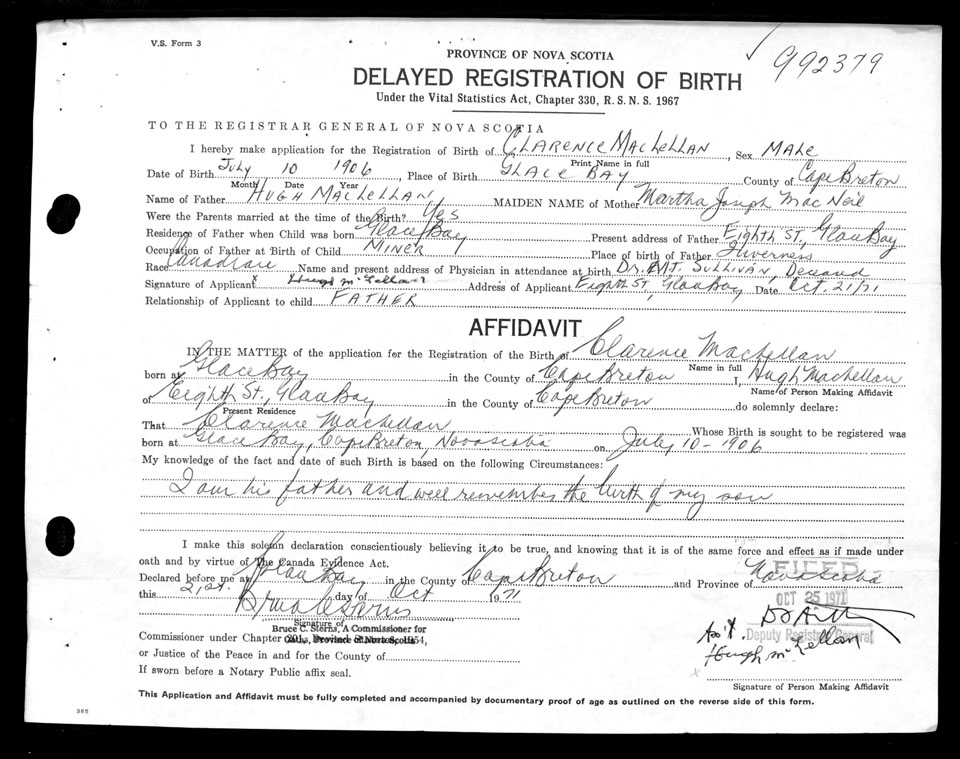 V.S. Form 3
992379
PROVINCE OF NOVA SCOTIA
DELAYED REGISTRATION OF BIRTH
Under the Vital Statistics Act, Chapter 330, R. S. N. S. 1967
TO THE REGISTRAR GENERAL OF NOVA SCOTIA
I hereby make application for the Registration of Birth of CLARENCE MacLELLAN, Sex MALE
Print Name in full
Date of Birth July 10 1906, Place of Birth GLACE BAY County of Cape Breton
Month Date Year
Name of Father HUGH MacLELLAN MAIDEN NAME of Mother Martha Joseph Mac Neil
Were the Parents married at the time of the Birth? Yes
Residence of Father when Child was born Glace Bay Present address of Father Eighth St., Glace Bay
Occupation of Father at Birth of Child MINER Place of birth of Father Inverness
Race Canadian Name and present address of Physician in attendance at birth DR. M.T. SULLIVAN, Deceased
Signature of Applicant x Hugh McLellan Address of Applicant Eighth St., Glace Bay Date Oct. 21/71
Relationship of Applicant to child FATHER
AFFIDAVIT
IN THE MATTER of the application for the Registration of the Birth of Clarence MacLellan
Name in full
born at Glace Bay in the County of Cape Breton I, Hugh MacLellan
Name of Person Making Affidavit
of Eighth St., Glace Bay in the County of Cape Breton do solemnly declare:
Present Residence
That Clarence MacLellan Whose Birth is sought to be registered was
born at Glace Bay, Cape Breton, Nova Scotia on July, 10 - 1906
My knowledge of the fact and date of such Birth is based on the following Circumstances:
I am his father and well remember the birth of my son
I make this solemn declaration conscientiously believing it to be true, and knowing that it is of the same force and effect as if made under
oath and by virtue of The Canada Evidence Act.
Declared before me at Glace Bay in the County of Cape Breton and Province of Nova Scotia
FILED
this 21st. day of Oct 1971
OCT 25 1971
Bruce C Sterns
Signature of
Bruce C. Sterns, A Commissioner for
Deputy Registrar General
Commissioner under Chapter 1954,
Hugh McLellan
or Justice of the Peace in and for the County of
If sworn before a Notary Public affix seal.
x
Signature of Person Making Affidavit
This Application and Affidavit must be fully completed and accompanied by documentary proof of age as outlined on the reverse side of this form.
385